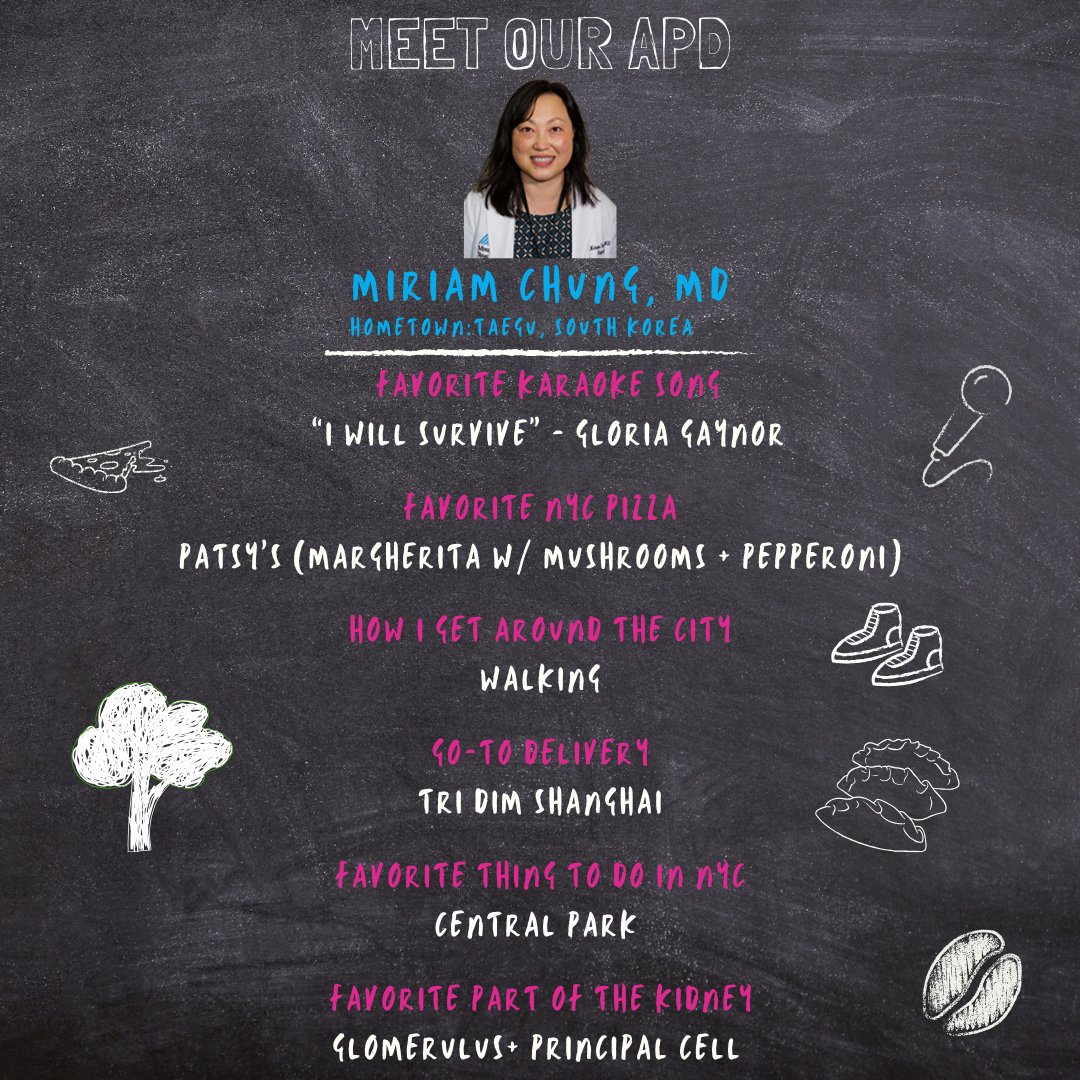 MEET OUR APD
MIRIAM CHUNG, MD
HOMETOWN:TAEGU, SOUTH KOREA
FAVORITE KARAOKE SONG
“I WILL SURVIVE” - GLORIA GAYNOR
FAVORITE NYC PIZZA
PATSY’S (MARGHERITA W/ MUSHROOMS + PEPPERONI)
HOW I GET AROUND THE CITY
WALKING
GO-TO DELIVERY
TRI DIM SHANGHAI
FAVORITE THING TO DO IN NYC
CENTRAL PARK
FAVORITE PART OF THE KIDNEY
GLOMERULUS+ PRINCIPAL CELL